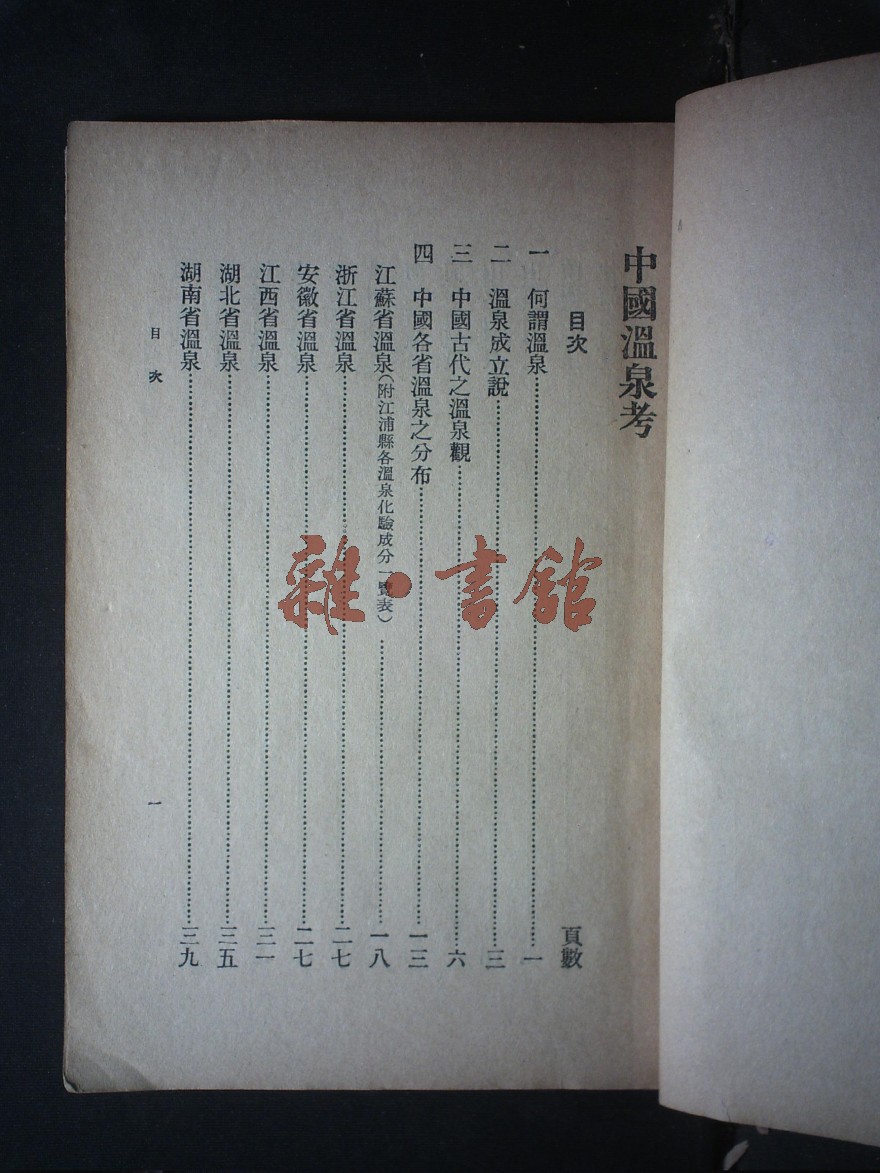 中國溫泉考
目次　頁數
一　何謂溫泉……一
二　溫泉成立說……三
三　中國古代之溫泉觀……六
四　中國各省溫泉之分布……一三
江蘇省溫泉（附江浦縣各溫泉化驗成分一覽表）……一八
浙江省溫泉……二七
安徽省溫泉……二七
江西省溫泉……三一
湖北省溫泉……三五
湖南省溫泉……三九
目次　一
雜·書館